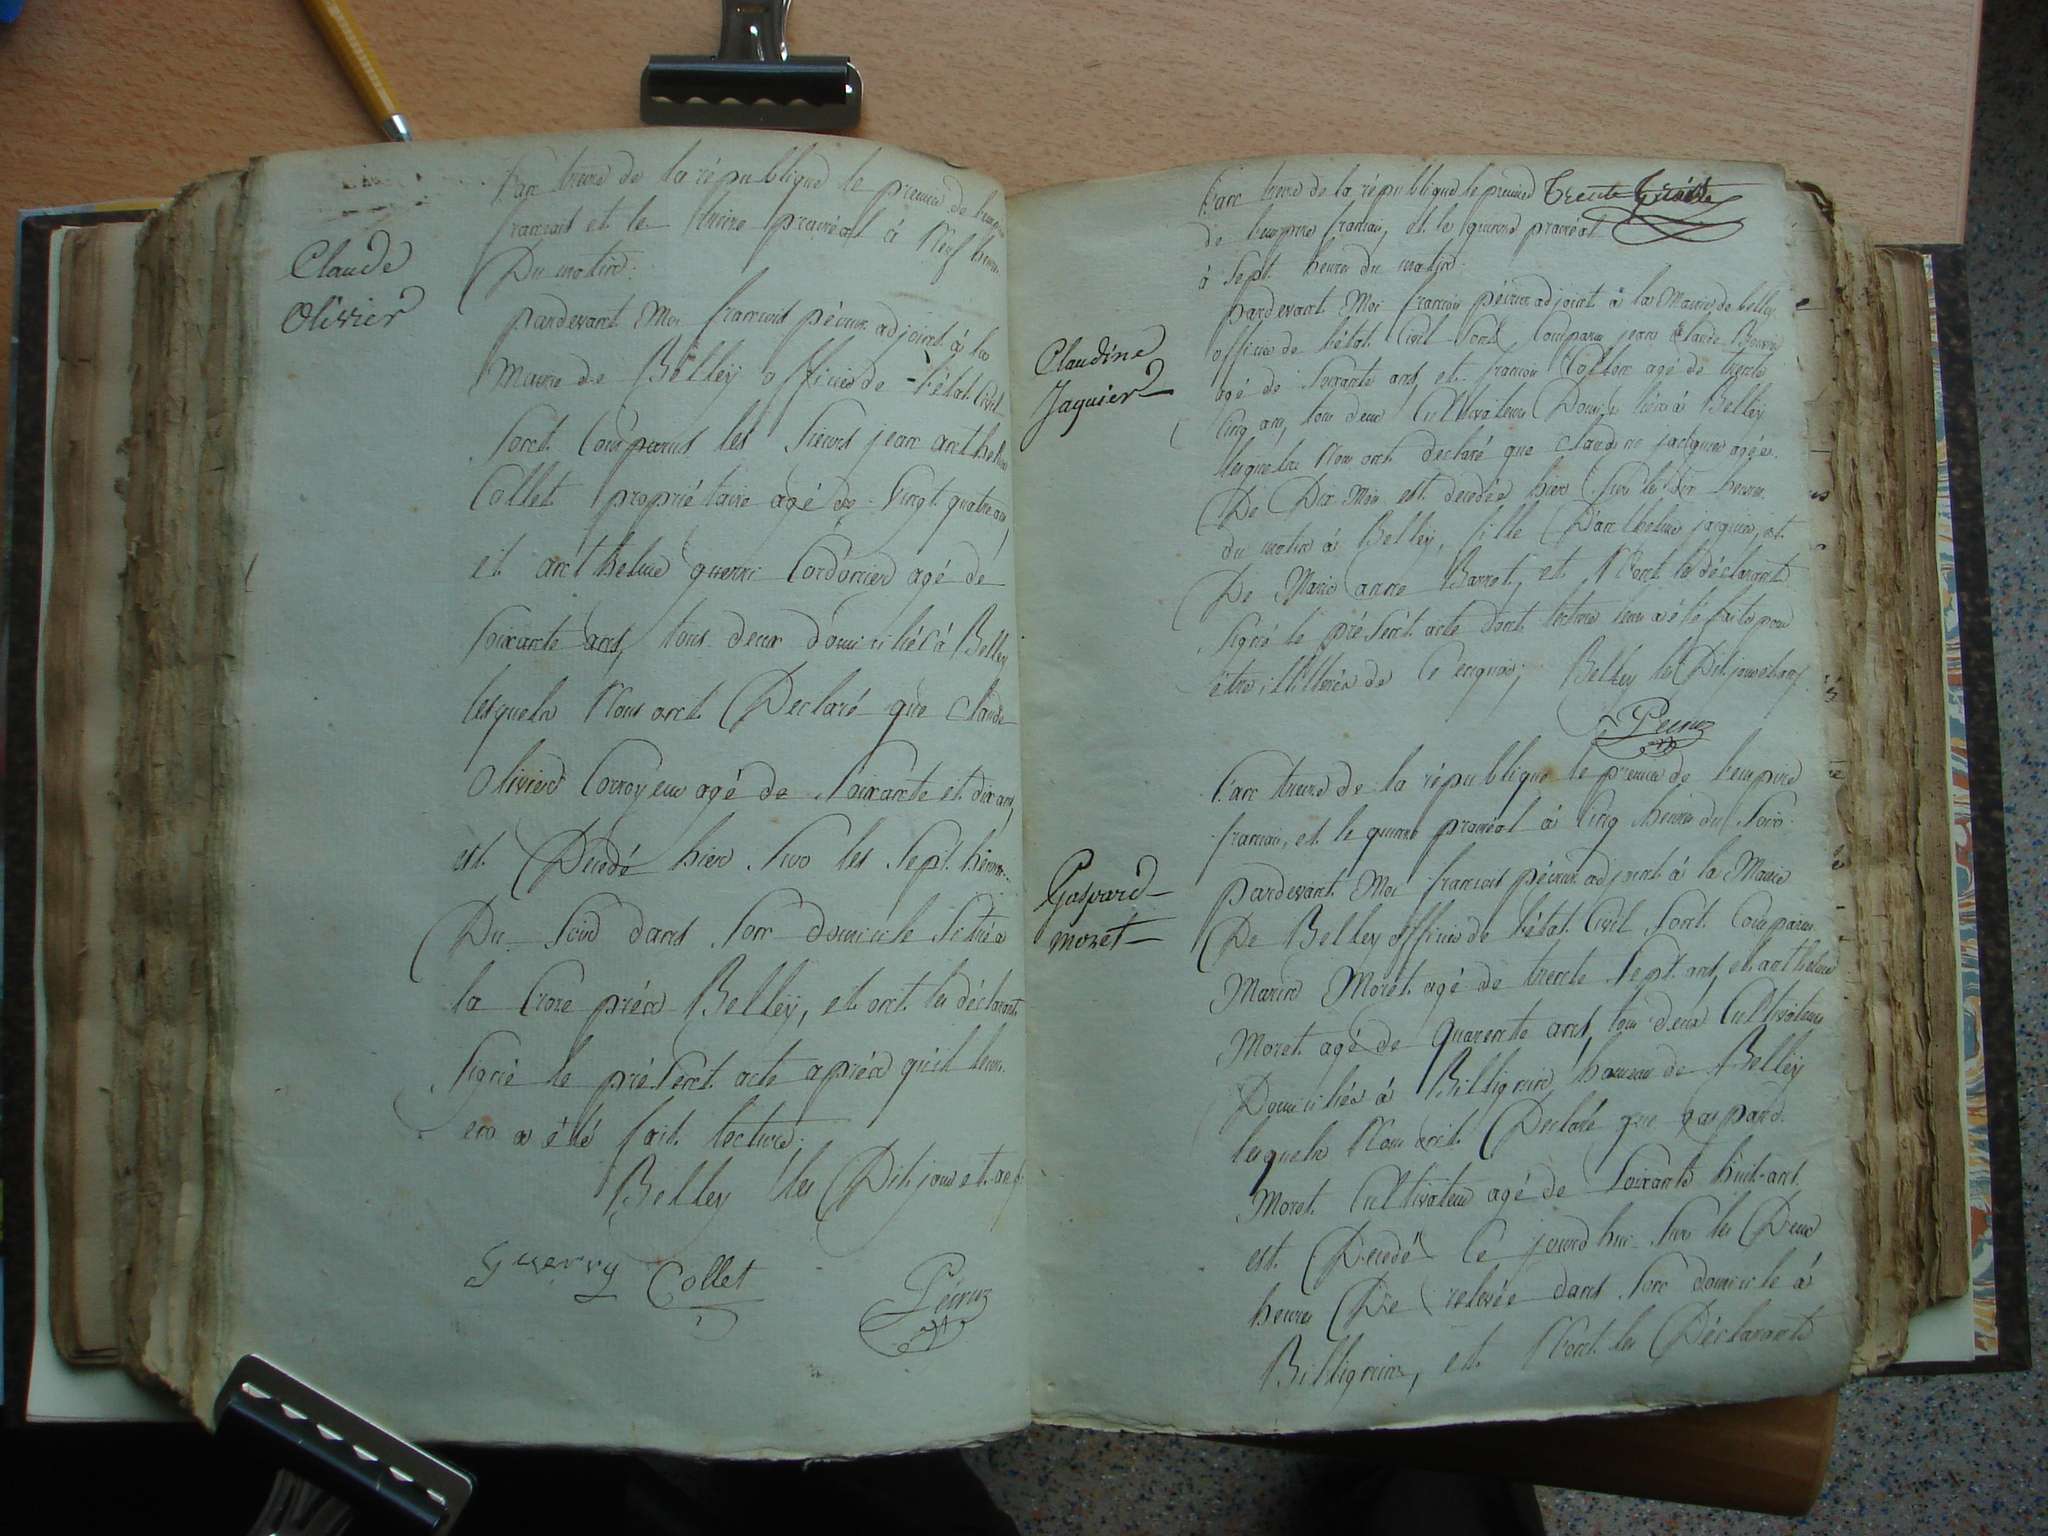 Claude
Olivier
L'an treize de la république le premier de l'empire
francais et le treize prairéal à Neuf heures
Du matin.
pardevant Moi francois pécruz adjoint à la
Mairie de Bélleÿ officier de l'état Civil
sont Comparus les sieurs jean anthelme
Collet propriétaire agé de vingt quatre ans,
et anthelme guerri Cordonier agé de
soixante ans, tous deux domiciliés à Belley
lesquels Nous ont Declaré que Claude
Olivier Corroyeur agé de soixante et dix ans,
est Décedé hier sur les sept heures
Du soir dans son domicile situé à
la Croze prés Belleÿ, et ont les déclarants
signé le présent acte aprés qu'il leur
en a été fait lecture.
Belley les Dit jour et an
Guerry Collet Pécruz
L'an treize de la république le premier Trente trois
de l'empire francais, et le quinze prairéal
à sept heures du matin.
Claudine
Jaquier
pardevant Moi francois pécruz adjoint à la Mairie de belley
officier de l'état Civil sont Comparus jean Claude
agé de soixante ans, et francois agé de trente
Cinq ans, tous deux Cultivateurs Domiciliés à Belley
lesquels Nous ont declaré que claudine jacquier agée
De Dix Mois est decedée hier sur les dix heures
du matin à Belleÿ, fille D'anthelme jacquier, et
De Marie anne Barret, et N'ont les déclarants
signé le présent acte dont lecture leur a été faite pour
être illiterés de Ce enquis; Belley les Dit jour et an
Pécruz
L'an treize de la république le premier de l'empire
francais, et le quinze prairéal à Cinq heures du soir.
Gaspard
moret
pardevant Moi francois pécruz adjoint à la Mairie
De Belley officier de l'état Civil sont Comparus
Marin Moret agé de trente sept ans, et anthelme
Moret agé de quarente ans, tous deux Cultivateurs
Domiciliés à Billignin hameau de Belley
lesquels Nous ont Déclaré que gaspard
Moret Cultivateur agé de soixante huit ans
est Décedé Ce jourd'hui sur les Deux
heures De relevée dans son domicile à
Billignin, et N'ont les Déclarants